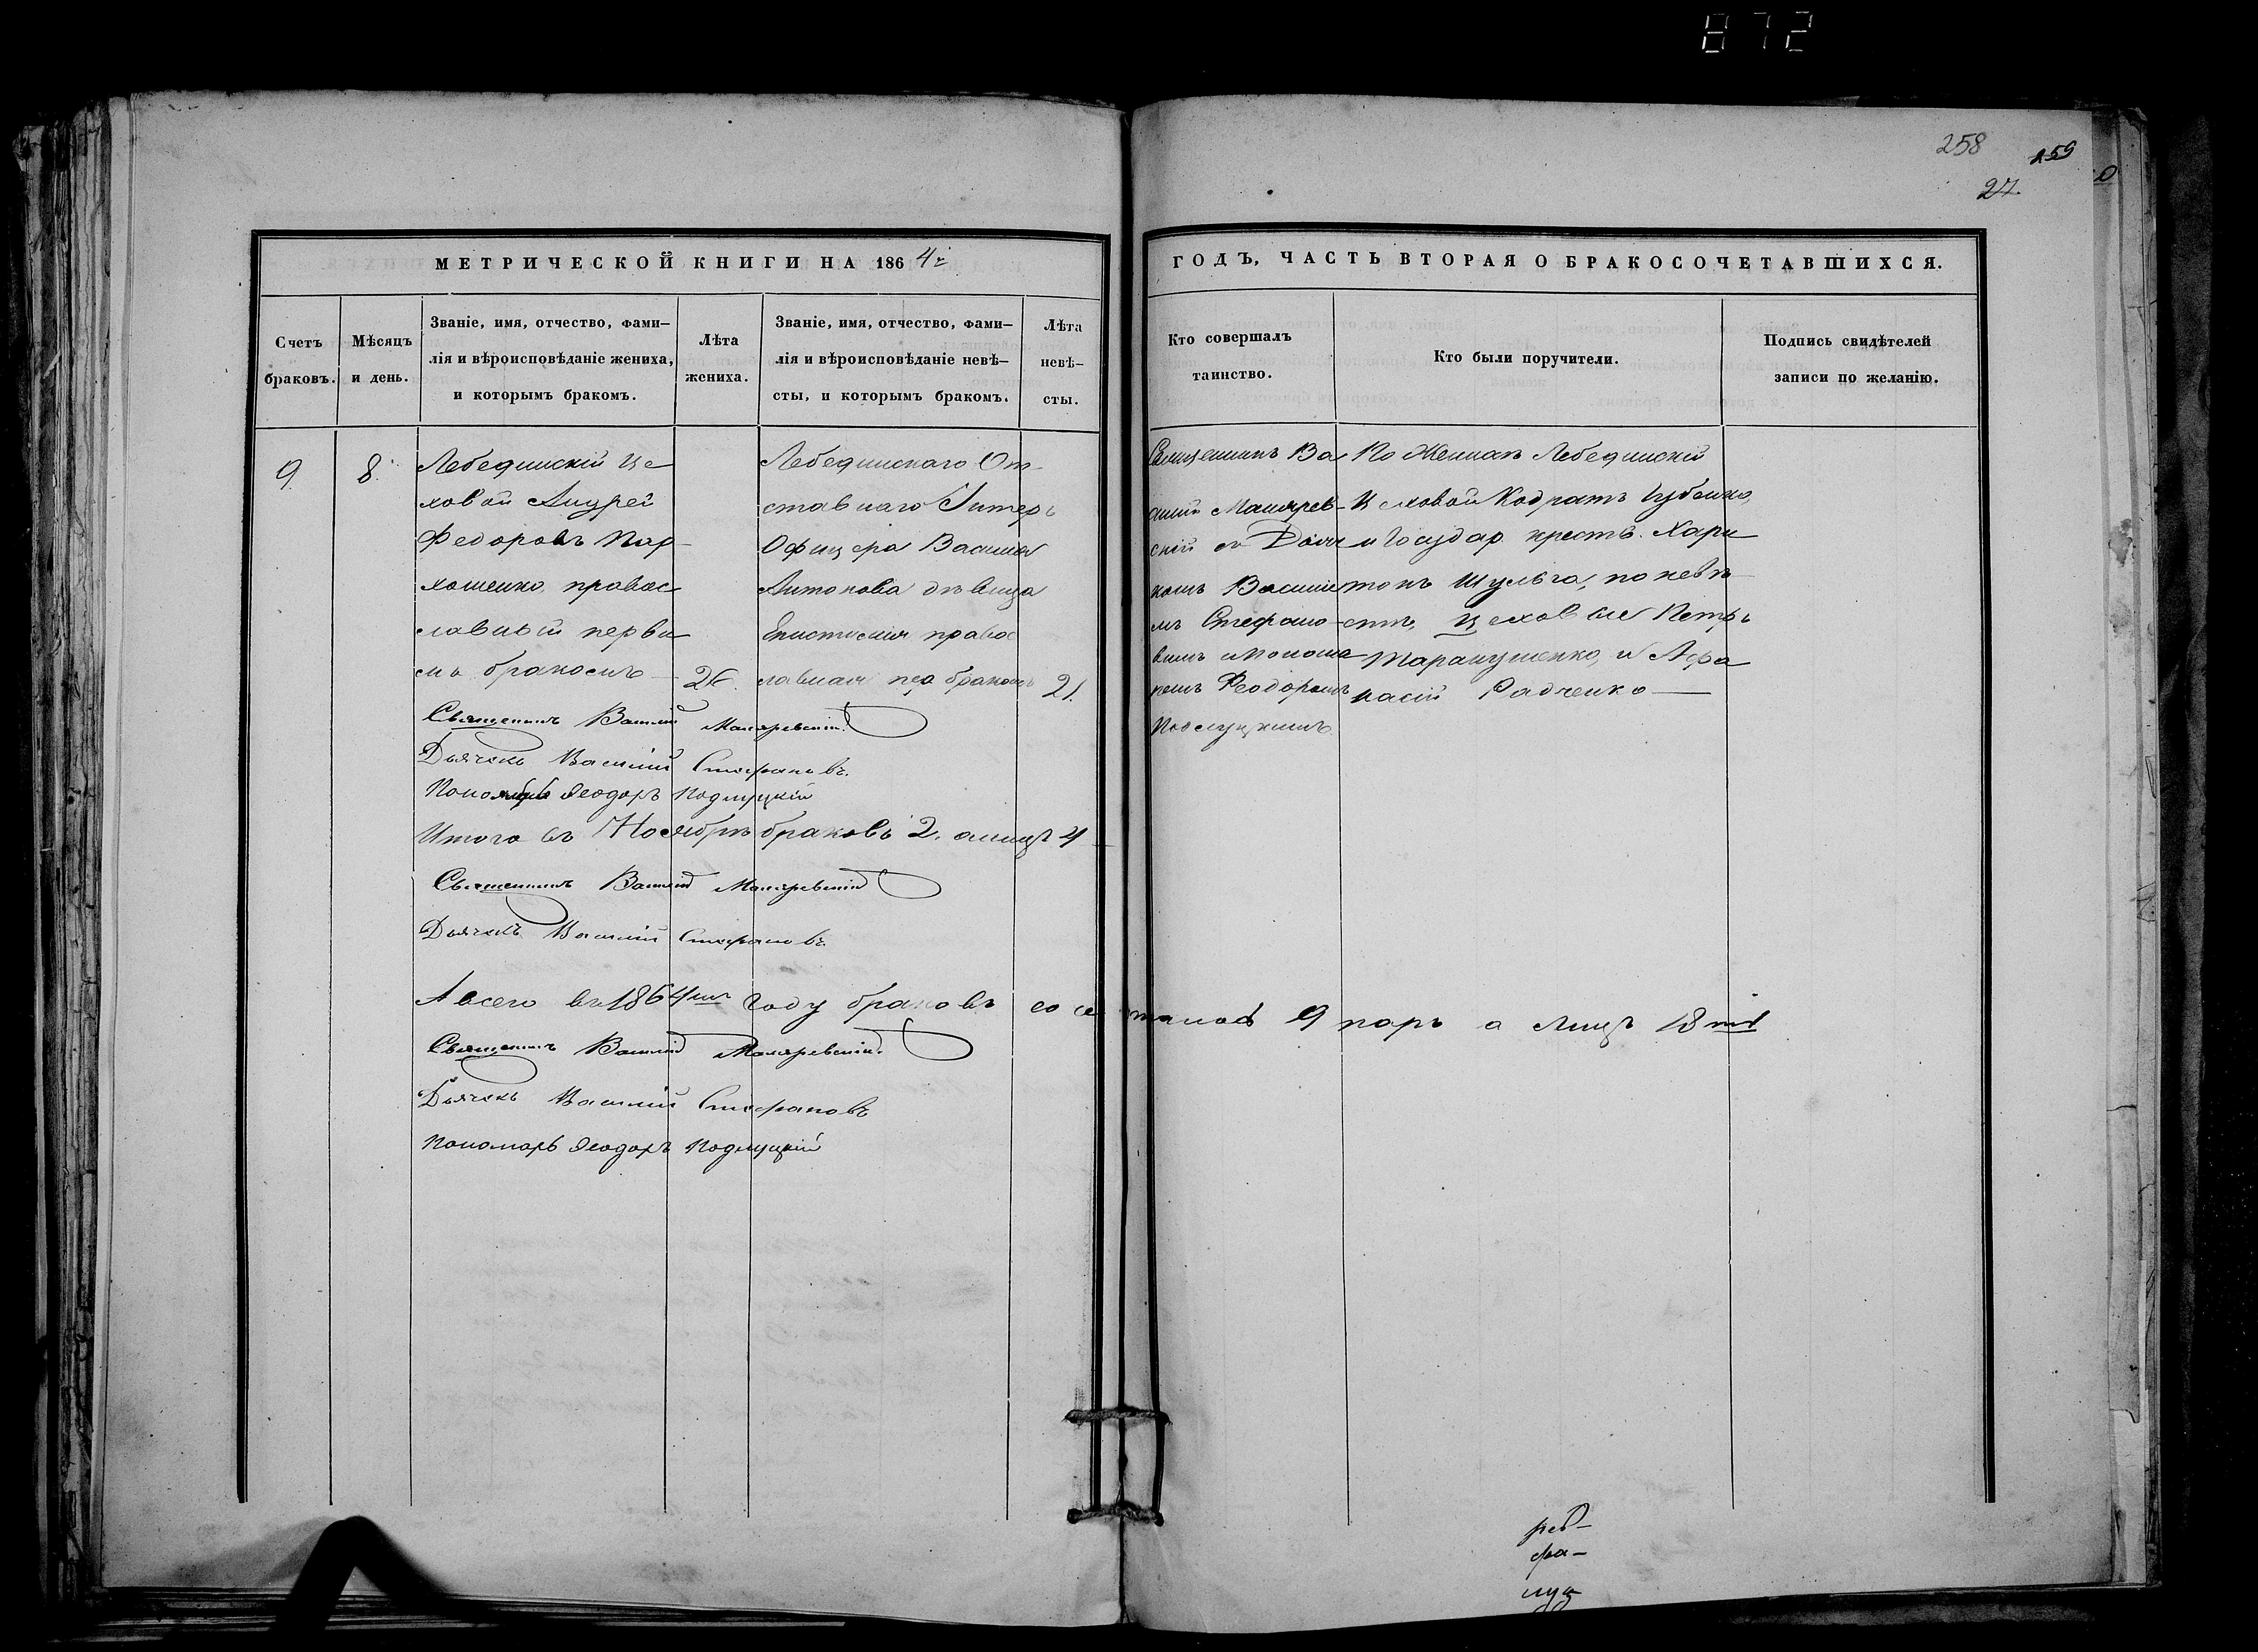 872
258
259
27.
МЕТРИЧЕСКОЙ КНИГИ НА 1864г
ГОДЪ, ЧАСТЬ ВТОРАЯ О БРАКОСОЧЕТАВШИХСЯ.
Счетъ
браковъ.
Мѣсяцъ
и день.
Званіе, имя, отчество, фами–
лія и вѣроисповѣданіе жениха,
и которымъ бракомъ.
Лѣта
жениха.
Званіе, имя, отчество, фами–
лія и вѣроисповѣданіе невѣ–
сты, и которымъ бракомъ.
Лѣта
невѣ–
сты.
Кто совершалъ
таинство.
Кто были поручители.
Подпись свидѣтелей
записи по желанію.
9.
8.
Лебединскій Це
ховой Андрей
Федоровъ Пар–
хоменко, правос
лавный первы
мъ бракомъ
26.
Лебединскаго От–
ставнаго Унтеръ
Офицера Василия
Антонова дѣвица
Епистимия правос
лавная пер бракомъ
21.
Священникъ Ва
силій Малярев–
скій съ Дьяч
комъ Василие
мъ Стефано–
вымъ и Понома
ремъ Феодоромъ
Подлуцкимъ.
По Женихѣ Лебединскій
Цеховой Кодратъ Губенко,
и Государ. крестъ. Хари
тонъ Шульга, по невѣ–
стѣ, Цеховые Петръ
Таранушенко, и Афа
насій Радченко —
Священникъ Василій Маляревскій.
Дьячекъ Василій Стефановъ.
Пономарь Феодоръ Подлуцкій
Итого въ Ноябрѣ браковъ 2, а лицъ 4
Священникъ Василій Маляревскій
Дьячекъ Василій Стефановъ.
А всего въ 1864мъ Году браковъ состоялось 9 паръ а лицъ 18ть
Священникъ Василій Маляревскій.
Дьячекъ Василій Стефановъ
Пономарь Феодоръ Подлуцкій